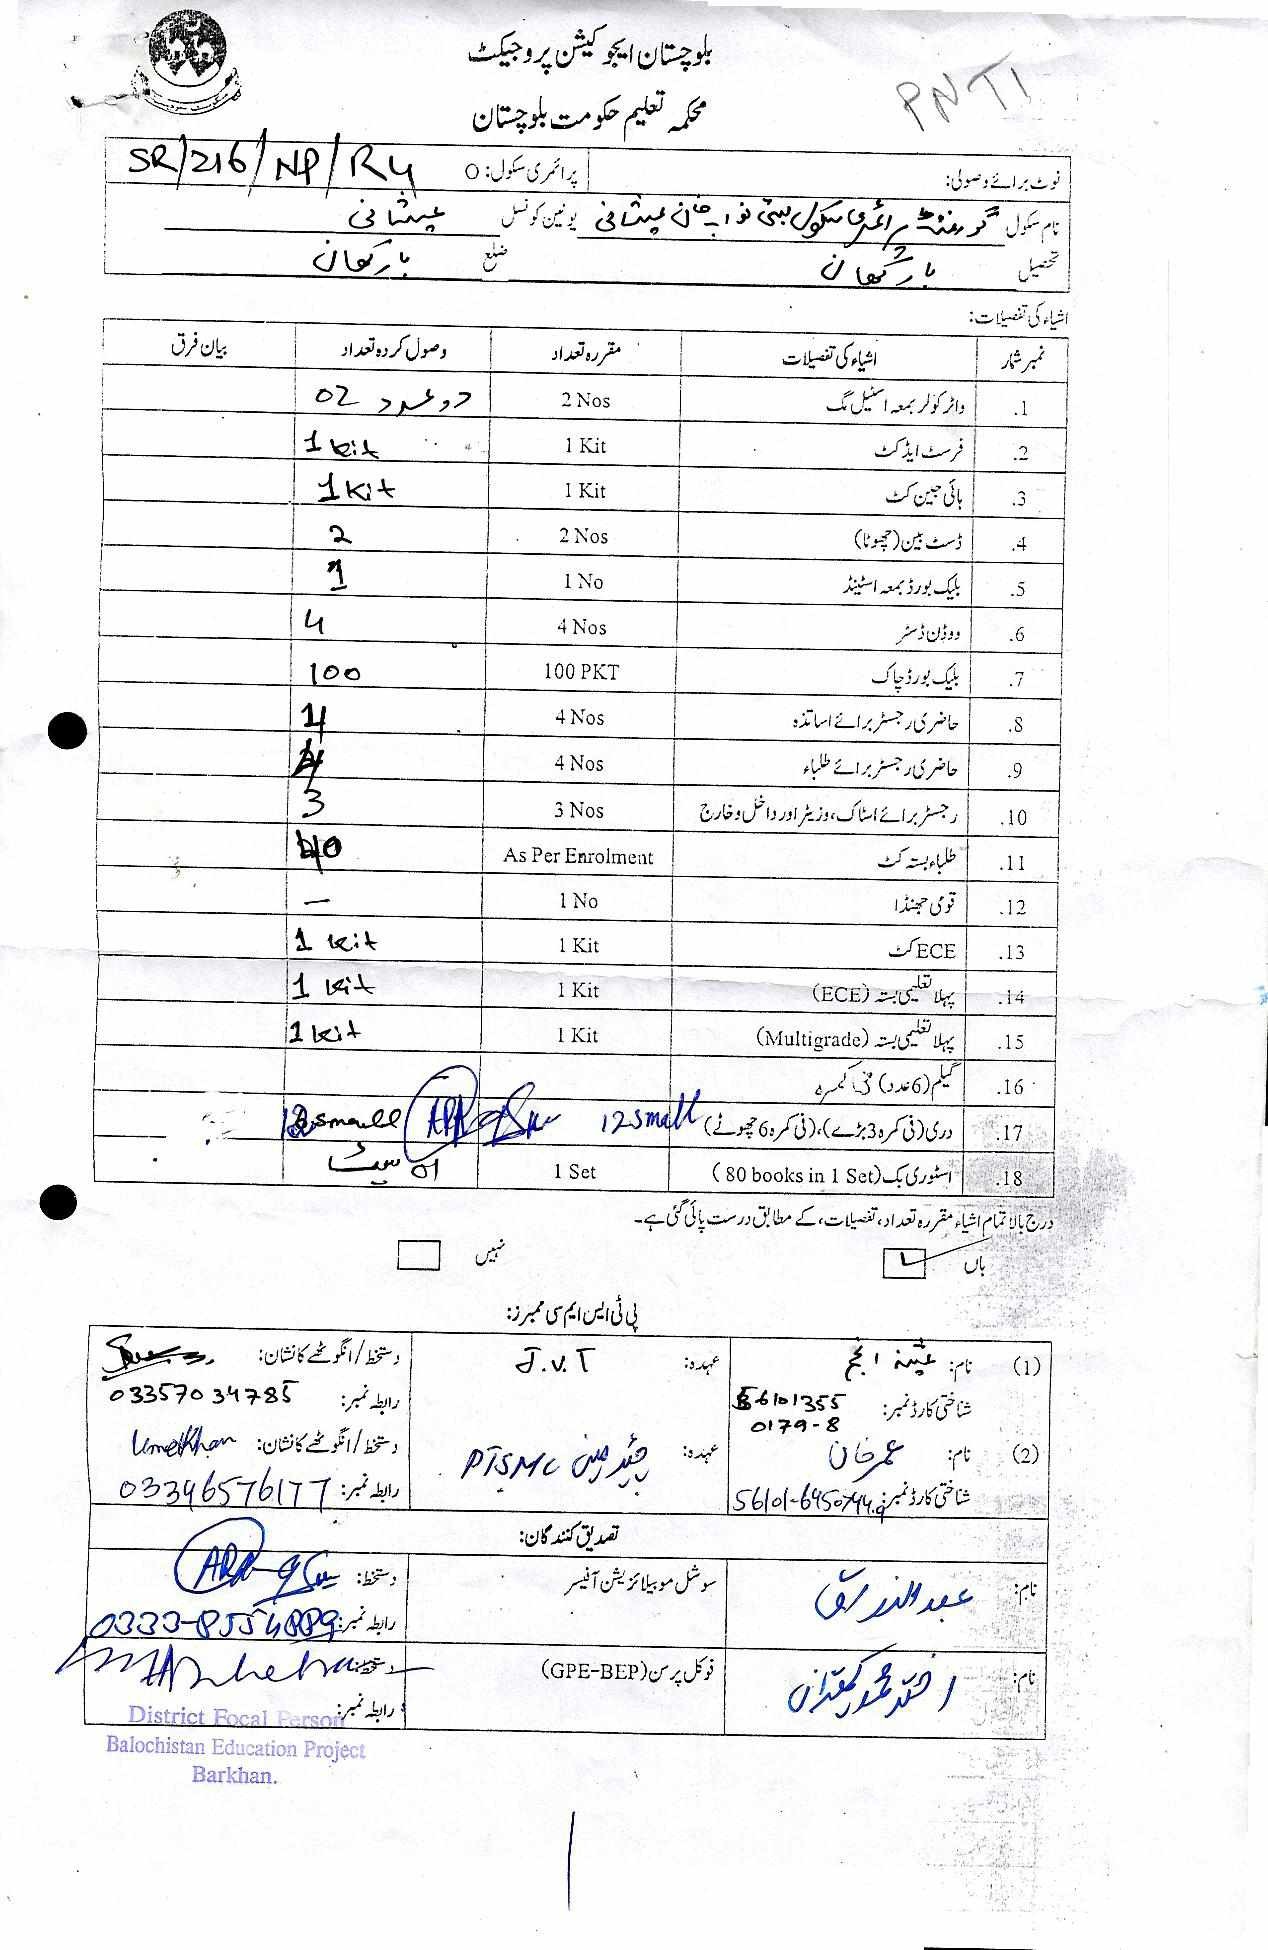 بلوچستان ایجوکیشن پروجیکٹ
محکمہ تعلیم حکومت بلوچستان
PNT1
نوٹ برائے وصولی: پرائمری سکول: O SR/216/NP/R4
نام سکول گورنمنٹ پرائمری سکول بستی نواب خان عیشانی یونین کونسل عیشانی
تحصیل بارکھان ضلع بارکھان
اشیاء کی تفصیلات:
نمبر شمار اشیاء کی تفصیلات مقررہ تعداد وصول کردہ تعداد بیان فرق
1. واٹر کولر بمعہ اسٹیل مگ 2 Nos دو عدد 02
2. فرسٹ ایڈ کٹ 1 Kit 1 Kit
3. ہائی جین کٹ 1 Kit 1 Kit
4. ڈسٹ بین (چھوٹا) 2 Nos 2
5. بلیک بورڈ بمعہ اسٹینڈ 1 No 1
6. ووڈن ڈسٹر 4 Nos 4
7. بلیک بورڈ چاک 100 PKT 100
8. حاضری رجسٹر برائے اساتذہ 4 Nos
9. حاضری رجسٹر برائے طلباء 4 Nos
10. رجسٹر برائے اسٹاک، وزیٹر اور داخل و خارج 3 Nos 3
11. طلباء بستہ کٹ As Per Enrolment
12. قومی جھنڈا 1 No –
13. ECE کٹ 1 Kit 1 Kit
14. پہلا تعلیمی بستہ (ECE) 1 Kit 1 Kit
15. پہلا تعلیمی بستہ (Multigrade) 1 Kit 1 Kit
16. گیلم (6 عدد) فی کمرہ
17. دری (فی کمرہ 3 بڑے)، (فی کمرہ 6 چھوٹے) 12 small small
18. اسٹوری بک (80 books in 1 Set) 1 Set 01 سیٹ
درج بالا تمام اشیاء مقررہ تعداد، تفصیلات، کے مطابق درست پائی گئی ہے۔
ہاں نہیں
پی ٹی ایس ایم سی ممبرز:
(1) نام: انجم عہدہ: J.V.T دستخط/انگوٹھے کا نشان:
شناختی کارڈ نمبر: 56101355 0179-8 رابطہ نمبر: 03357034785
(2) نام: عمر خان عہدہ: چیئرمین PTSMC دستخط/انگوٹھے کا نشان: Umer Khan
شناختی کارڈ نمبر: 56101-6450744.9 رابطہ نمبر: 03346576177
تصدیق کنندگان:
نام: عبدالرزاق سوشل موبیلائزیشن آفیسر دستخط:
رابطہ نمبر: 0333-
نام: اختر محمد کھیتران فوکل پرسن (GPE-BEP) دستخط:
رابطہ نمبر:
District Focal Person
Balochistan Education Project
Barkhan.